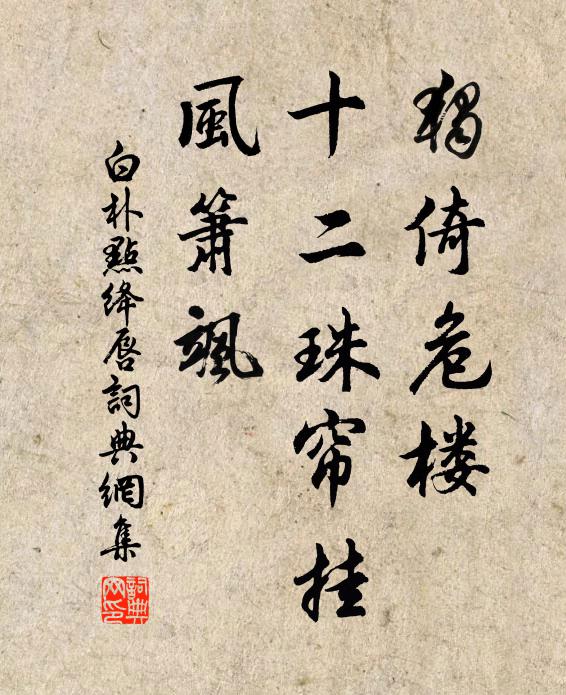 獨倚危楼
十二珠帘挂
風簫颯
白朴點绛唇詞典網集
詞典网印